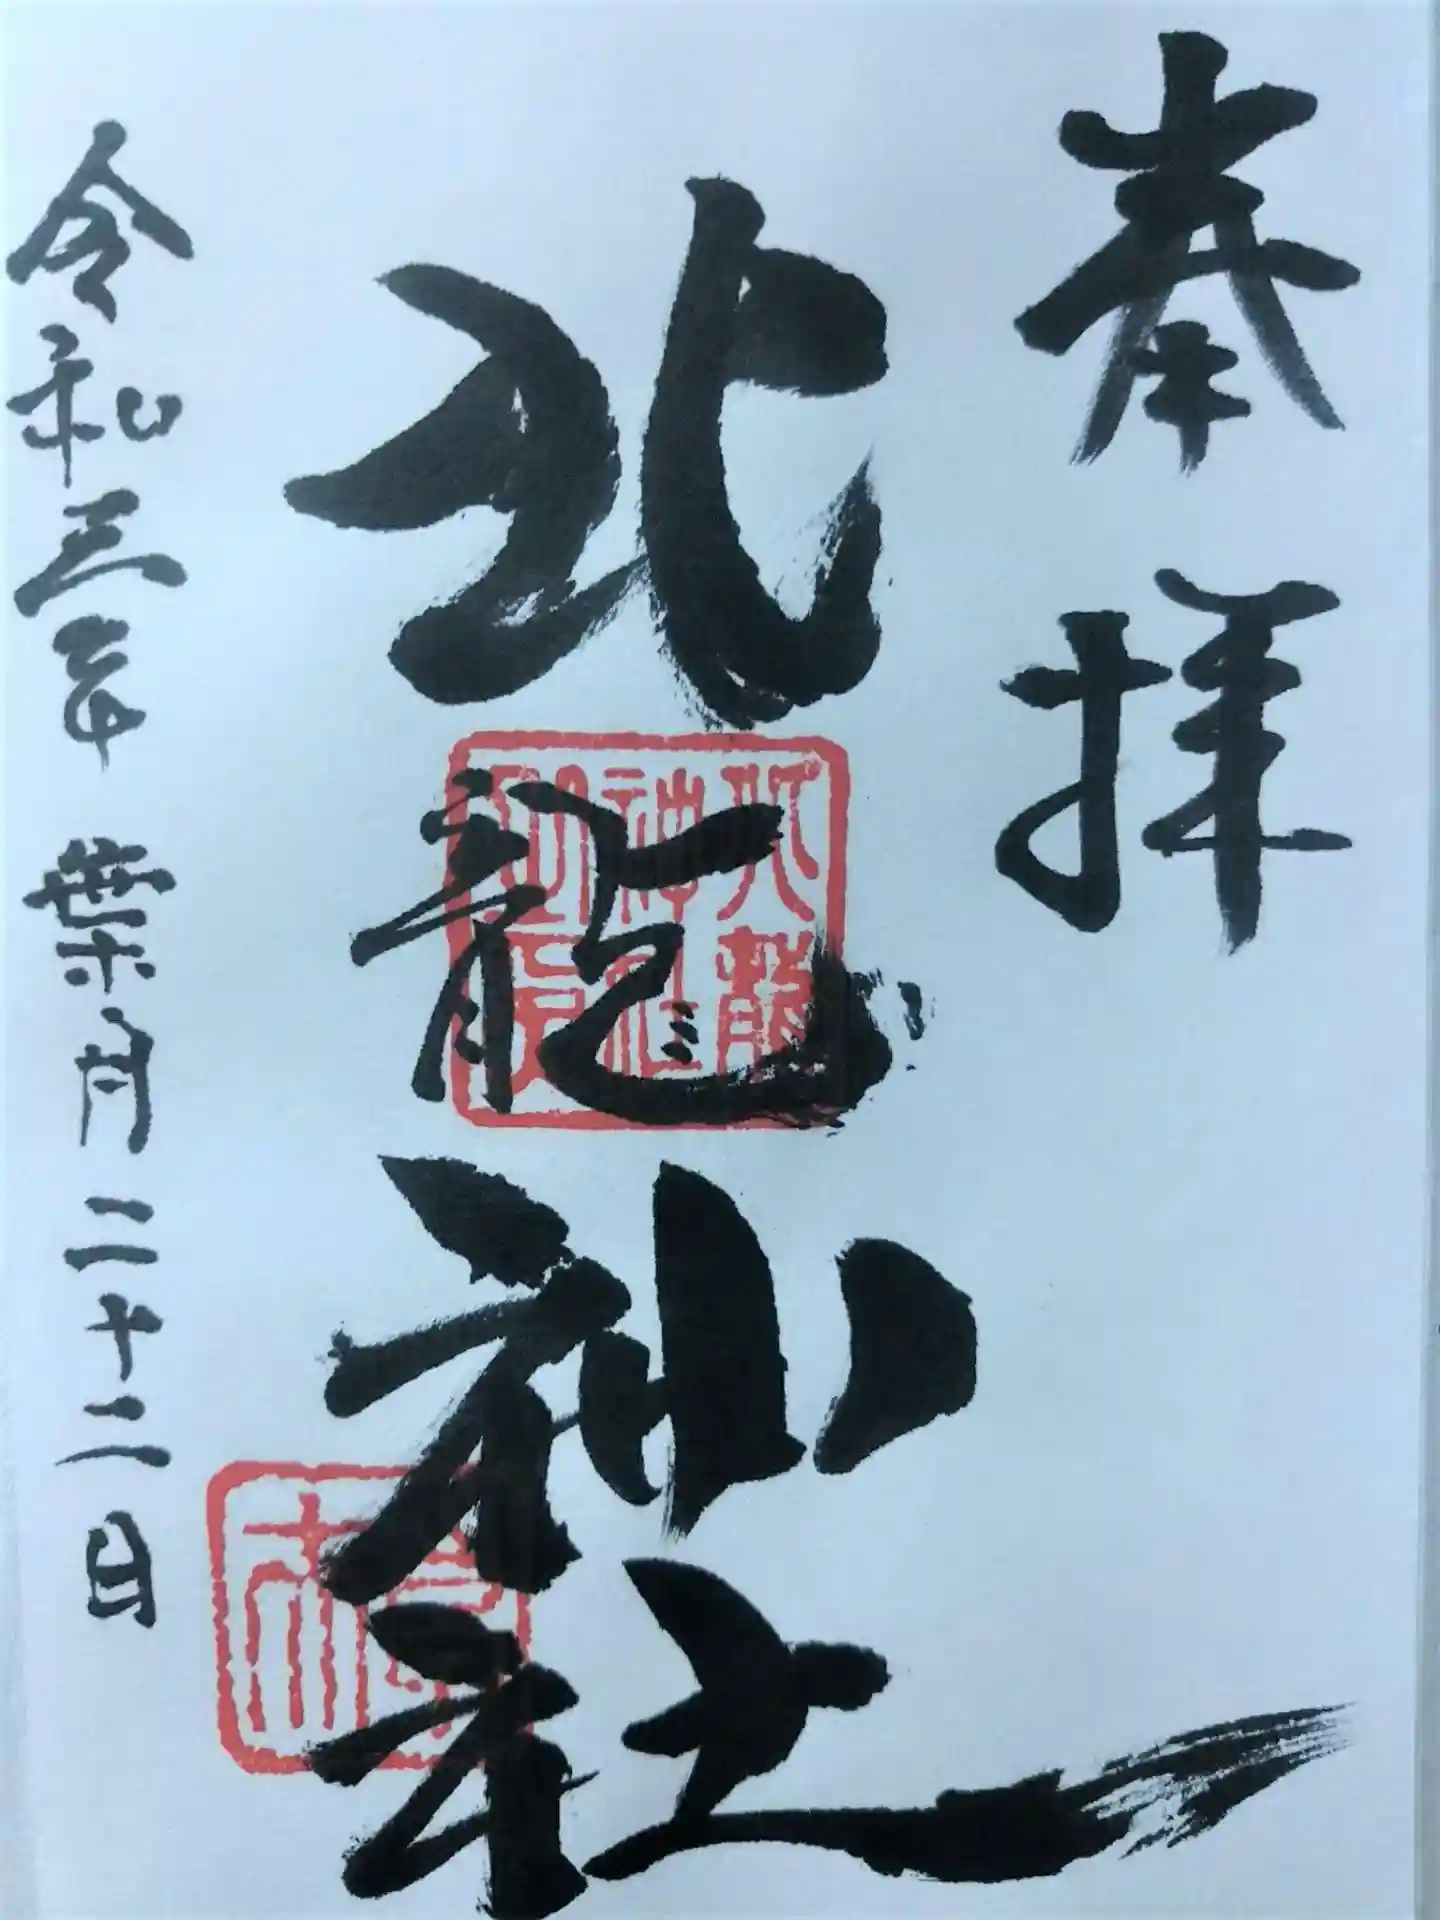 奉拝
北龍神社
北龍
神社
之印
令和三年 葉月二十二日